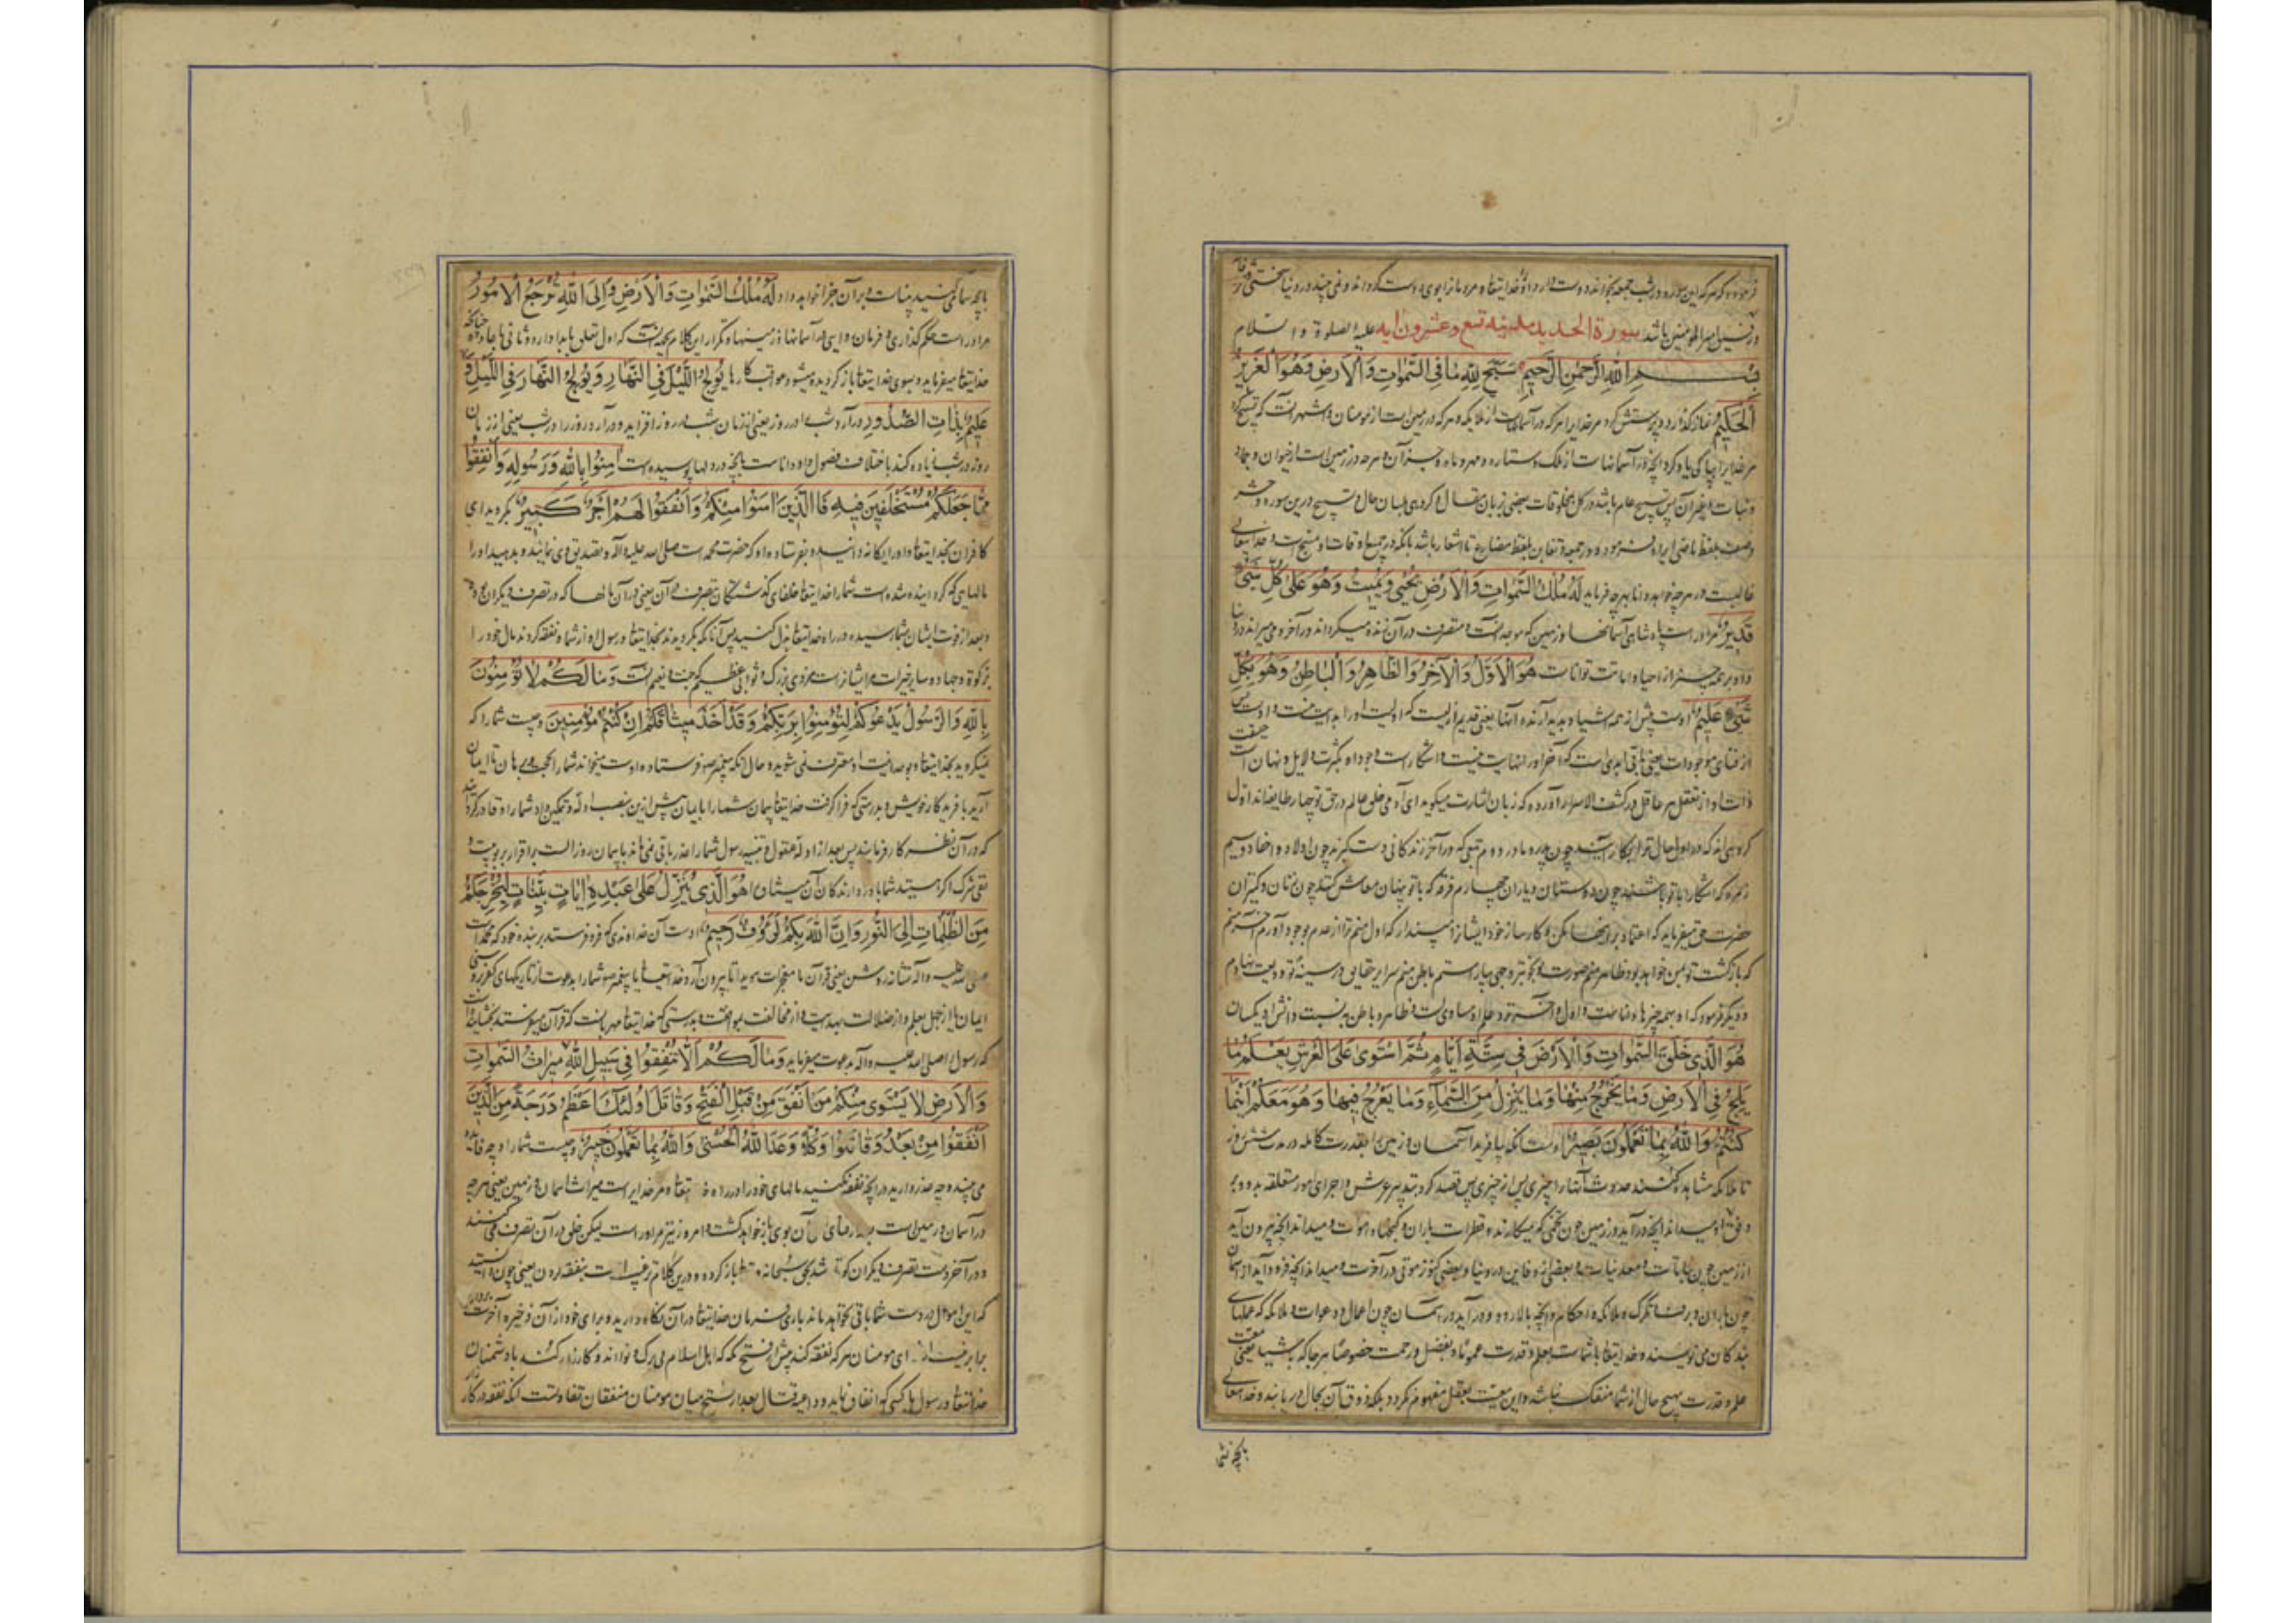 فرموده که هرکه این سوره در شب جمعه بخواند دوست دارد او را خدایتعا و مردمانرا بوی دوست گرداند و نبیند در دنیا سختی و فاقه
باشد سورة الحدید مدنیه تسع و عشرون آیه علیه الصلوة و السلام
بسم الله الرحمن الرحیم سَبَّحَ لِلَّهِ مَا فِی السَّمٰوَاتِ وَالْاَرْضِ وَهُوَ الْعَزِیزُ
الْحَکِیمُ نماز گذارد و پرستش کرد مر خدایرا هرکه در آسمانهاست از ملایکه و هرکه در زمین است از مومنان و
مر خدایرا بپاکی یاد کرد آنچه در آسمانهاست از ملک و ستاره و مهر و ماه و جز آن و هرچه در زمین است از حیوان و جماد
و نبات و غیر آن پس تسبیح عام باشد در کل مخلوقات بعضی بزبان مقال و گروهی بلسان حال و تسبیح درین سوره و حشر
وصف بلفظ ماضی ایراد فرموده و در جمعه و تغابن بلفظ مضارع تا اشعار باشد بآنکه در جمیع اوقات او مسبح است و خدایتعالی
غالبست در هرچه خواهد و دانا بهرچه فرماید لَهُ مُلْکُ السَّمٰوَاتِ وَالْاَرْضِ یُحْیِی وَیُمِیتُ وَهُوَ عَلٰی کُلِّ شَیْءٍ
قَدِیرٌ مر اوراست پادشاهی آسمانها و زمین که موجد آنست و متصرف در آن زنده میگرداند در آخر و می میراند در دنیا
و او بر همه چیز از احیا و اماتت تواناست هُوَ الْاَوَّلُ وَالْآخِرُ وَالظَّاهِرُ وَالْبَاطِنُ وَهُوَ بِکُلِّ
شَیْءٍ عَلِیمٌ اوست پیش از همه اشیا و پدید آرنده آنها یعنی قدیم ازلیست که اولیت او را بدایت نیست و اوست پس
از فنای موجودات یعنی باقی ابدی است که آخر او را نهایت نیست و آشکار است وجود او بکثرت دلایل و نهان است حقیقت
ذات او از تعقل هر عاقل در کشف الاسرار آورده که زبان اشارت میگوید ای آدمی خلق عالم در حق تو چهار طایفه اند اول
گروهی اند که در اول حال ترا بکار آیند چون پدر و مادر دوم جمعی که در آخر زندگانی دست گیرند چون اولاد و احفاد سیم
زمره که آشکارا با تو باشند چون دوستان و یاران چهارم فرقه که با تو پنهان معاش کنند چون زنان و کنیزان
حضرت حق میفرماید که اعتماد بر اینها مکن و کارساز خود ایشانرا مپندار که اول منم ترا از عدم بوجود آوردم آخر منم
که بازگشت تو بمن خواهد بود ظاهر منم صورت تو بخوبتر وجهی بیاراستم باطن منم سرایر حقایق در سینه تو ودیعت نهادم
و دیگر فرمود که او بهمه چیزها داناست و اول و آخر نزد علم او مساوی است و ظاهر و باطن به نسبت دانش او یکسان
هُوَ الَّذِی خَلَقَ السَّمٰوَاتِ وَالْاَرْضَ فِی سِتَّةِ اَیَّامٍ ثُمَّ اسْتَوٰی عَلَی الْعَرْشِ یَعْلَمُ مَا
یَلِجُ فِی الْاَرْضِ وَمَا یَخْرُجُ مِنْهَا وَمَا یَنْزِلُ مِنَ السَّمَآءِ وَمَا یَعْرُجُ فِیهَا وَهُوَ مَعَکُمْ اَیْنَمَا
کُنْتُمْ وَاللّٰهُ بِمَا تَعْمَلُونَ بَصِیرٌ اوست آنکه بیافرید آسمان و زمین را بقدرت کامله در مدت شش روز
تا ملائکه مشاهده کنند حدوث آنها را چیزی پس از چیزی پس قصد کرد بتدبیر عرش و اجرای امور متعلقه بدو
میداند آنچه درآید در زمین چون تخمی که میکارند و قطرات باران و گنجها و اموات و میداند آنچه بیرون آید
از زمین چون نباتات و معدنیات و بعضی از دفاین در دنیا و بعضی کنوز موتی در آخرت و میداند آنچه فرود آید از آسمان
چون باران و برف و تگرگ و ملائکه و احکام و آنچه بالا رود و درآید در آسمان چون اعمال و دعوات و ملائکه که عملهای
بندگان می نویسند و خدایتعا با شماست بعلم و قدرت عموما و بفضل و رحمت خصوصا هرجا که باشید یعنی معیت
علم و قدرت بهیچ حال از شما منفک نباشد و این معیت بعقل مفهوم نگردد بلکه ذوق آن بحال دریابند و خدایتعالی
بآنچه شما
بآنچه شما میکنید بیناست و بر آن جزا خواهد داد لَهُ مُلْکُ السَّمٰوَاتِ وَالْاَرْضِ وَاِلَی اللّٰهِ تُرْجَعُ الْاُمُورُ
مر اوراست حکم گذاری و فرمان روایی در آسمانها و زمینها و تکرار این کلام بجهت آنست که اول تعلق بابدا دارد و ثانی باعاده چنانکه
خدایتعا میفرماید و بسوی خدایتعا بازگردیده میشود عواقب کارها یُولِجُ اللَّیْلَ فِی النَّهَارِ وَیُولِجُ النَّهَارَ فِی اللَّیْلِ وَهُوَ
عَلِیمٌ بِذَاتِ الصُّدُورِ درآرد شب را در روز یعنی از زمان شب در روز افزاید و درآرد روز را در شب یعنی از زمان
روز در شب زیاده کند باختلاف فصول و او داناست بآنچه در دلها پوشیده است آمِنُوا بِاللّٰهِ وَرَسُولِهِ وَاَنْفِقُوا
مِمَّا جَعَلَکُمْ مُسْتَخْلَفِینَ فِیهِ فَالَّذِینَ آمَنُوا مِنْکُمْ وَاَنْفَقُوا لَهُمْ اَجْرٌ کَبِیرٌ بگروید ای
کافران بخدایتعا و او را یگانه دانید و بفرستاده او که حضرت محمد است صلی الله علیه و آله و تصدیق وی نمائید و بدهید او را
مالهایی که گردانیده شده است شما را خدایتعا خلفای گذشتگان بتصرف در آن یعنی در آن مالها که در تصرف دیگران بوده
و بعد از فوت ایشان بشما رسیده در راه خدایتعا بذل کنید پس آنانکه بگرویدند بخدایتعا و رسول او از شما و نفقه کردند مال خود را
بزکوة و جهاد و سایر خیرات مر ایشانراست مزدی بزرگ و ثوابی عظیم که جنت و نعیم است وَمَا لَکُمْ لَا تُؤْمِنُونَ
بِاللّٰهِ وَالرَّسُولُ یَدْعُوکُمْ لِتُؤْمِنُوا بِرَبِّکُمْ وَقَدْ اَخَذَ مِیثَاقَکُمْ اِنْ کُنْتُمْ مُؤْمِنِینَ و چیست شما را که
نمیگروید بخدایتعا و بوحدانیت او معترف نمی شوید و حال آنکه پیغمبر که فرستاده اوست میخواند شما را تا ایمان
آرید بآفریدگار خویش و بدرستی که فرا گرفت خدایتعا پیمان شما را پیش ازین بنصب ادله و تمکین داد شما را
که در آن نظر کار فرمائید پس بعد از ادله عقول و تنبیه رسول شما را عذر باقی نمی ماند یا پیمان روز الست بر اقرار بربوبیت و
نفی شرک اگر هستید شما باور دارندگان آن میثاق را هُوَ الَّذِی یُنَزِّلُ عَلٰی عَبْدِهِ آیَاتٍ بَیِّنَاتٍ لِیُخْرِجَکُمْ
مِنَ الظُّلُمَاتِ اِلَی النُّورِ وَاِنَّ اللّٰهَ بِکُمْ لَرَؤُفٌ رَحِیمٌ اوست آن خداوندی که فرو فرستد بر بنده خود که محمد است
صلی الله علیه و آله نشانه روشن یعنی قرآن یا معجزات هویدا تا بیرون آرد خدایتعا یا پیغمبر شما را بدعوت از تاریکیهای کفر بروشنی
ایمان یا از جهل بعلم و از ضلالت بهدایت و از مخالفت بموافقت و بدرستی که خدایتعا مهربانست که قرآن میفرستد بخشاینده است
که رسول را صلی الله علیه و آله بدعوت میفرماید وَمَا لَکُمْ اَلَّا تُنْفِقُوا فِی سَبِیلِ اللّٰهِ مِیرَاثُ السَّمٰوَاتِ
وَالْاَرْضِ لَا یَسْتَوِی مِنْکُمْ مَنْ اَنْفَقَ مِنْ قَبْلِ الْفَتْحِ وَقَاتَلَ اُولٰئِکَ اَعْظَمُ دَرَجَةً مِنَ الَّذِینَ
اَنْفَقُوا مِنْ بَعْدُ وَقَاتَلُوا وَکُلًّا وَعَدَ اللّٰهُ الْحُسْنٰی وَاللّٰهُ بِمَا تَعْمَلُونَ خَبِیرٌ و چیست شما را و چه فائده
می بیند و چه عذر دارید در آنچه نفقه نکنید مالهای خود را در راه خدایتعا و مر خدایراست میراث آسمان و زمین یعنی هرچه
در آسمان و زمین است آن بوی باز خواهد گشت و امروز نیز مر اوراست لیکن خلق در آن تصرف می کنند
و در آخر دست تصرف دیگران کوتاه شد بحق سبحانه و تعا باز گردد و درین کلام ترغیب است بنفقه کردن یعنی چون دانستید
که این اموال در دست شما باقی نخواهد ماند باری بفرمان خدایتعا در آن نگاه دارید و برای خود از آن ذخیره آخرت
برابر نیست ای مومنان هرکه نفقه کند پیش از فتح مکه که اهل اسلام و کارزار کند با دشمنان
خدایتعا و رسول با کسی که انفاق نماید و داعیه قتال بعد از فتح میان مومنان منفقان تفاوتست آنکه نفقه و کارزار